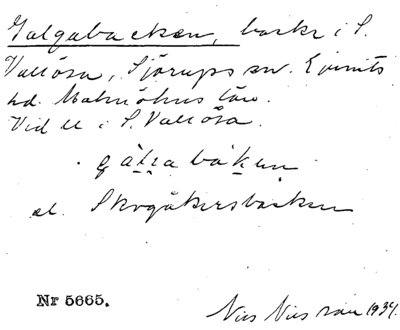 Galgabacken, backe i S.
Vallösa, Sjörups sn. Ljunits
hd. Malmöhus län.
Vid ll i S. Vallösa.
gáljabáken
el. Skogåkersbacken
Nr 5665.
Nils Nilsson 1934.